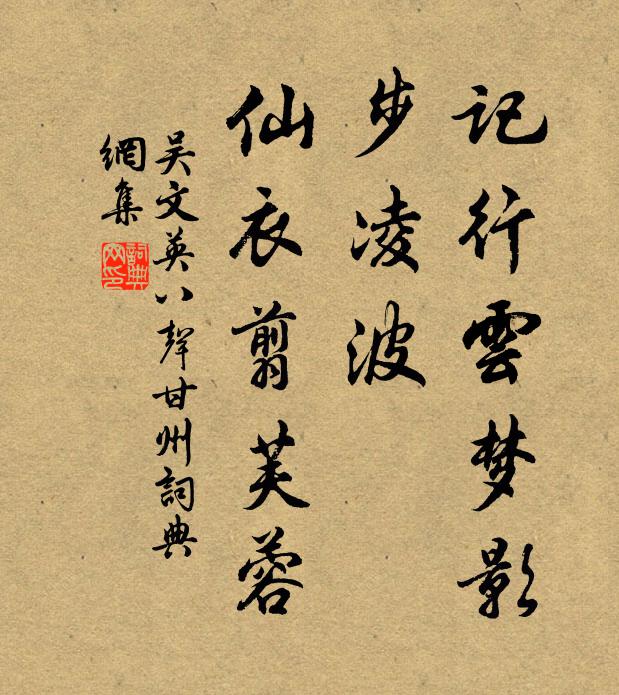 记行雲梦影
步凌波
仙衣剪芙蓉
吴文英八聲甘州詞典
網集
詞典
网印